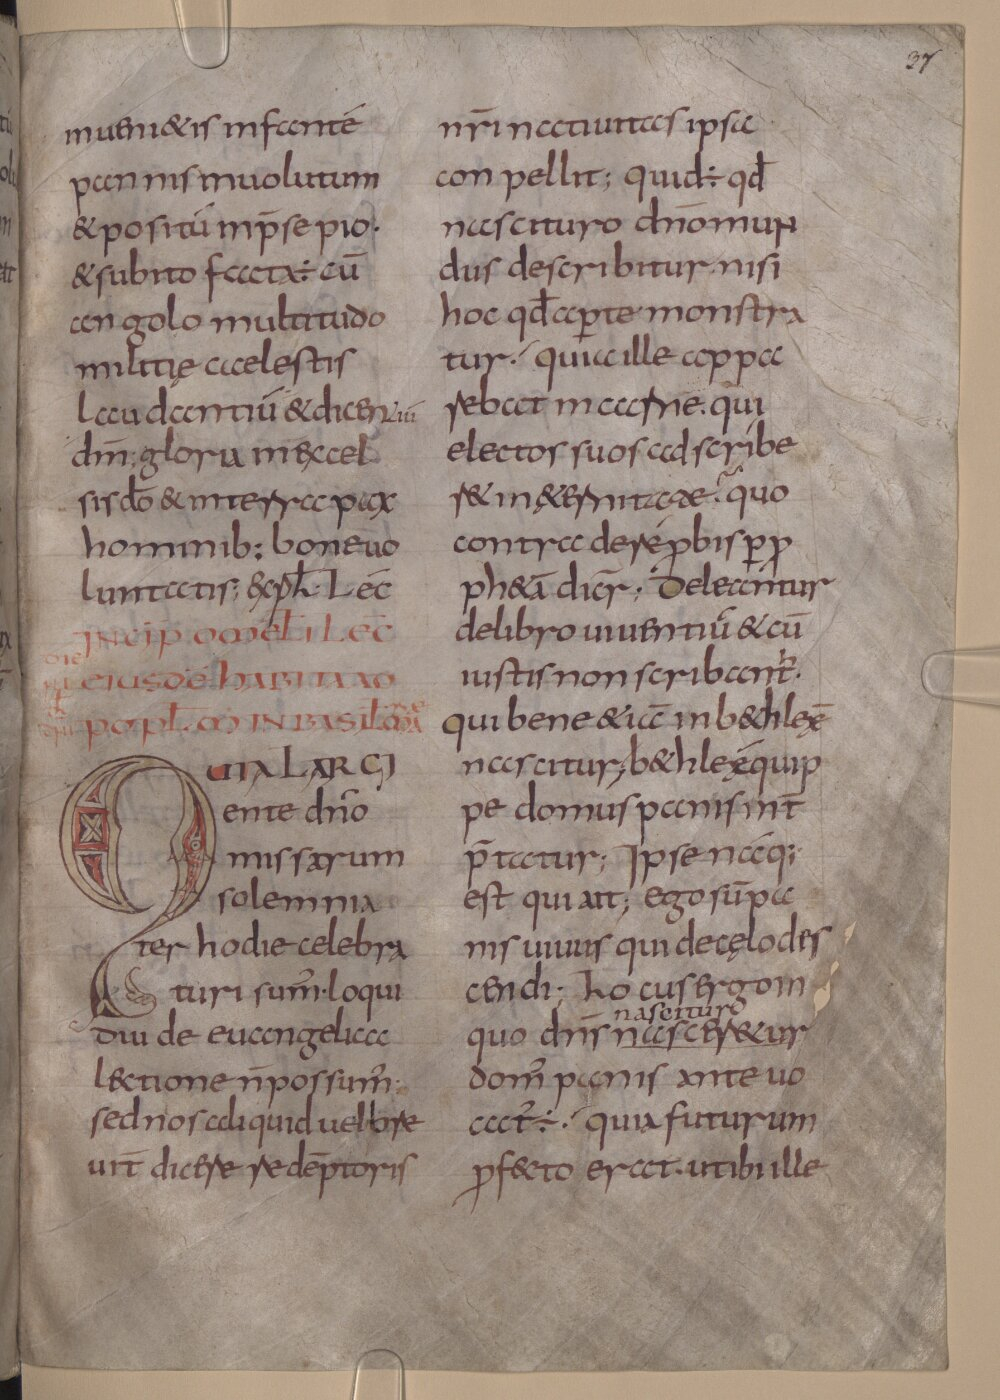 37
inueni&is infantē
pannis inuolutum
& positū inp̄sepio·
& subito facta÷ cū
angolo multitudo
militię caelestis
laudantiū & dicentiū
dm̄; gloria inexcel
sis dō & interra pax
hominib; bone uo
luntatis; & rƚ. Lec̄
INCIP OMEL I LEC̄
EIUSDĒ HABITA AD
POPL̄ŌM IN BASIL
QUIA LARGI
ente dn̄o
missarum
solemnia
ter hodie celebra
turi sum̄· loqui
diu de euangelica
lectione n̄ possum̄;
sed nos aliquid uelbre
uit̄ dicere redēptoris
nr̄i natiuitas ipsa
conpellit; quid÷ qđ
nascituro dn̄o mun
dus describitur· nisi
hoc qđ aperte monstra
tur· quia ille appa
rebat in carne· qui
electos suos adscribe
r& in &ernitate· quo
contra de repbis pp
ph&ā dicr̄; Deleantur
de libro uiuentiū & cū
iustis non scribant̄·
qui bene &iā in b&hleē
nascitur; b&hleē quip
pe domus panis int̄
p̄tatur; Ipse naq;
est qui ait; ego sū pa
nis uiuus qui de cęlo des
cendi; Locus ergo in
nascituro
quo dn̄s nascer&ur
dom̄ panis ante uo
cat̄÷· quia futurum
pf&to erat· ut ibi ille